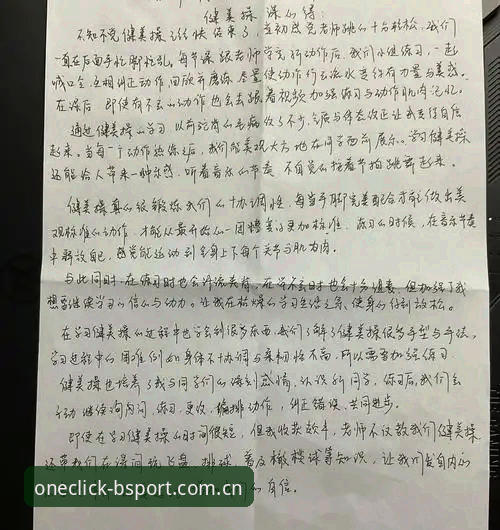 健美操 课心得:
不知不觉健美操 课快结束了, 当初感觉老师跳的十分轻松, 我们
一直在后面手忙脚忙乱, 每节课 跟老师学完新动作后 我们小组练习, 一起
喊口令 互相纠正动作 回顾并磨练, 尽量使动作行云流水更得有力量与美感.
在课后 即使有不会的动作也会去跟着视频加强练习与动作肌肉记忆.
通过健美操的学习 以前驼背的毛病改了不少, 气质与体态改正让我变得自信
起来. 当每一个动作熟练之后, 我们能美观大方地在同学面前展示. 学习健美操
还能给人带来一种乐感, 听着音乐的节奏 不自觉的按着节拍跳跃起来.
健美操真的很锻炼我们的协调性, 每当手脚完美配合才能做出美
观标准的动作, 才能从最开始的一团糟变得更加标准, 练习的时候, 在音乐节奏
中释放自己, 感觉能运动到全身上下每个关节与肌肉.
与此同时, 在练习时也会汗流夹背, 在学不会时也会十分沮丧, 但加强了我
想要继续学习的信心与动力. 让我在枯燥的学习生活之余, 使身心得到放松.
在学习健美操的过程中也学会到很多东西, 我们了解了健美操很多手型与手法,
学习过程中的困难例如身体不协调与柔韧性不高, 所以需要加强练习.
健美操也培养了我与同学们的深刻感情, 认识新同学, 练习后, 我们会
主动继续询问 练习, 更改, 编排动作, 纠正错误, 共同进步.
即使在学习健美操的时间很短, 但我收获颇丰, 老师不仅教我们健美操
还带我们在课间玩飞盘, 排球, 普及橄榄球等知识, 让我们发自内心
的自信.
oneclick-bsport.com.cn